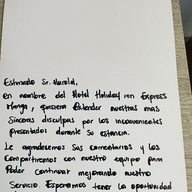 Estimado Sr. Harold,
en nombre del Hotel Holiday inn Express
Manga, quisiera Extender nuestras mas
Sinceras disculpas por los inconvenientes
presentados durante su estancia.
Le agradecemos Sus comentarios y los
Compartiremos con nuestro equipo para
Poder Continuar mejorando nuestro
Servicio. Esperamos tener la oportunidad